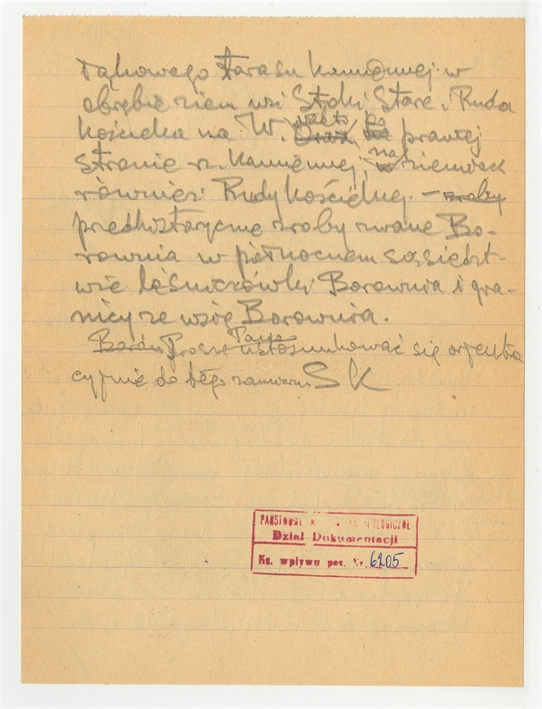 rąkowego tarasu Kamiennej w
obrębie ziem wsi Stoki Stare i Ruda
Kościelna na W. oraz po prawej
stronie rz. Kamiennej, na ziemiach
również Rudy Kościelnej. – zroby
prehistoryczne zroby zwane Bo-
rownia w północnem sąsiedzt-
wie leśniczówki Borownia i gra-
nicy ze wsią Borownia.
Bardzo Proszę Pana ustosunkować się orjenta
cyjnie do tego zamiaru SK
PAŃSTWOWE
Dział Dokumentacji
Ks. wpływu poz. Nr. 6205